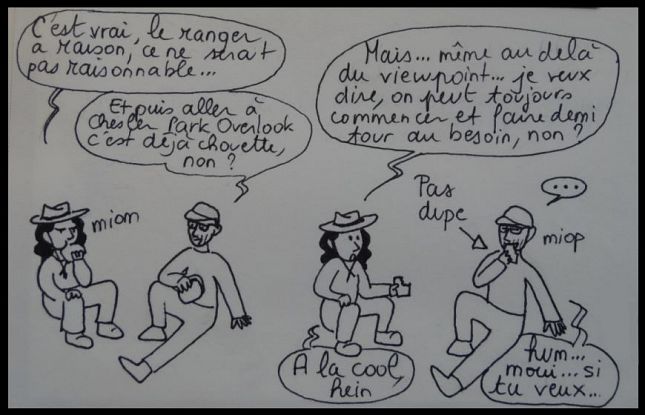 C'est vrai, le ranger
a raison, ce ne serait
pas raisonnable...
Et puis aller à
Chesler Park Overlook
c'est déjà chouette,
non ?
miom
Mais... même au delà
du viewpoint... je veux
dire, on peut toujours
commencer et faire demi
tour au besoin, non ?
A la cool,
hein
Pas
dupe
...
miop
hum...
moui... si
tu veux...